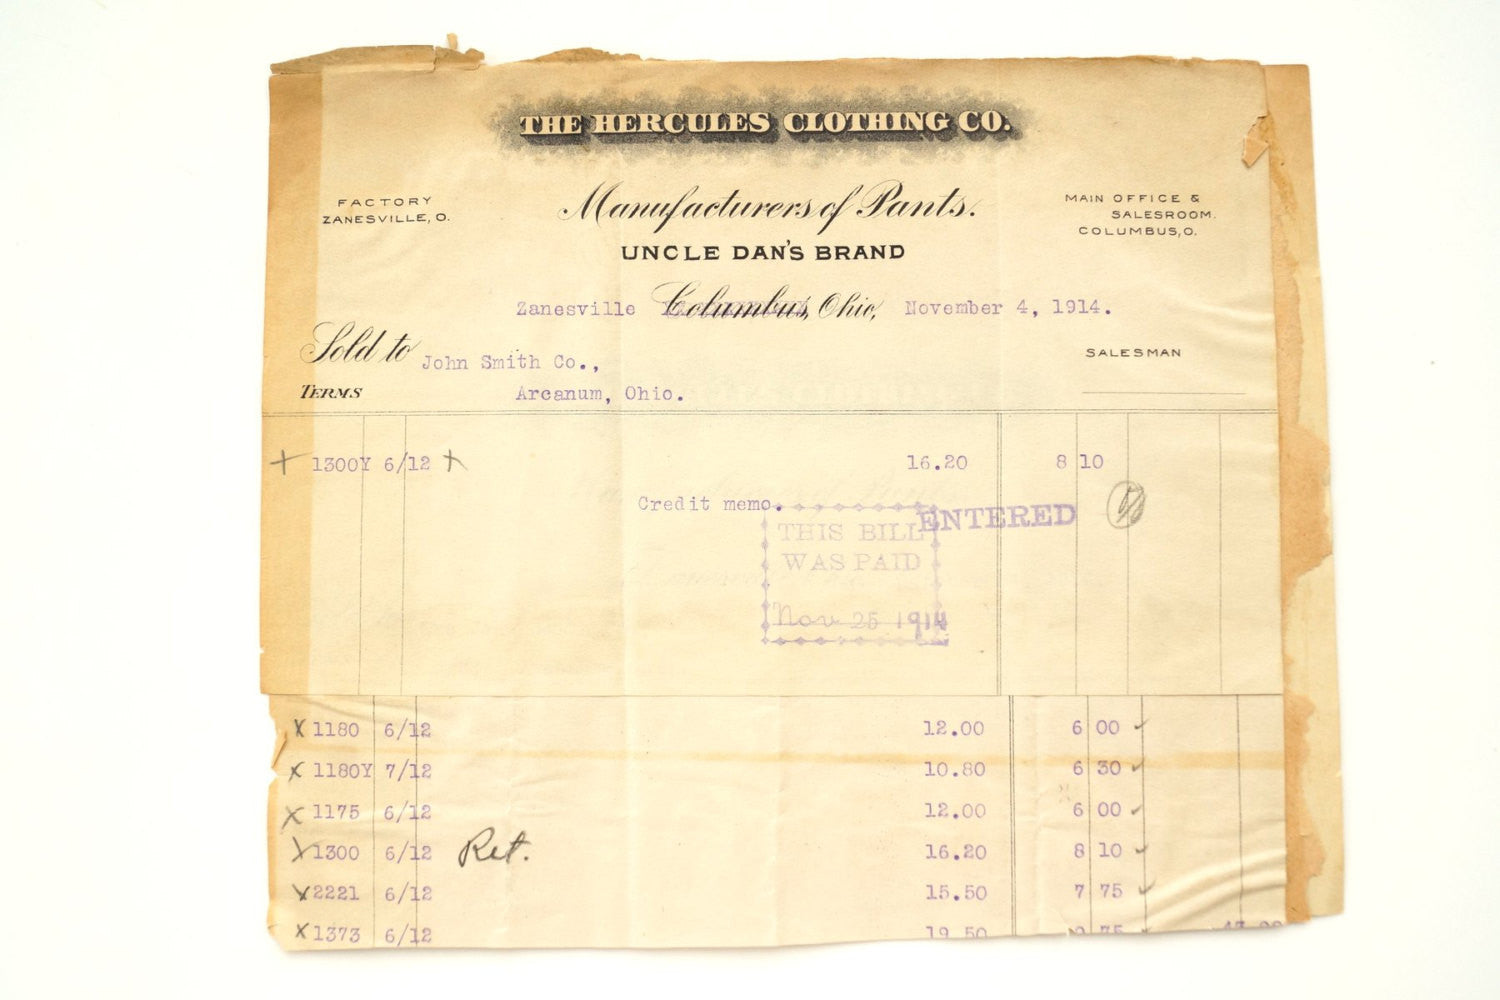 THE HERCULES CLOTHING CO.
FACTORY
ZANESVILLE, O.
Manufacturers of Pants.
UNCLE DAN'S BRAND
MAIN OFFICE &
SALESROOM.
COLUMBUS, O.
Zanesville Columbus, Ohio, November 4, 1914.
Sold to John Smith Co.,
SALESMAN
TERMS Arcanum, Ohio.
1300Y 6/12 16.20 8 10
Credit memo.
ENTERED
THIS BILL
WAS PAID
Nov 25 1914
X 1180 6/12 12.00 6 00
X 1180Y 7/12 10.80 6 30
X 1175 6/12 12.00 6 00
1300 6/12 Ret. 16.20 8 10
X 2221 6/12 15.50 7 75
X 1373 6/12 19.50 75